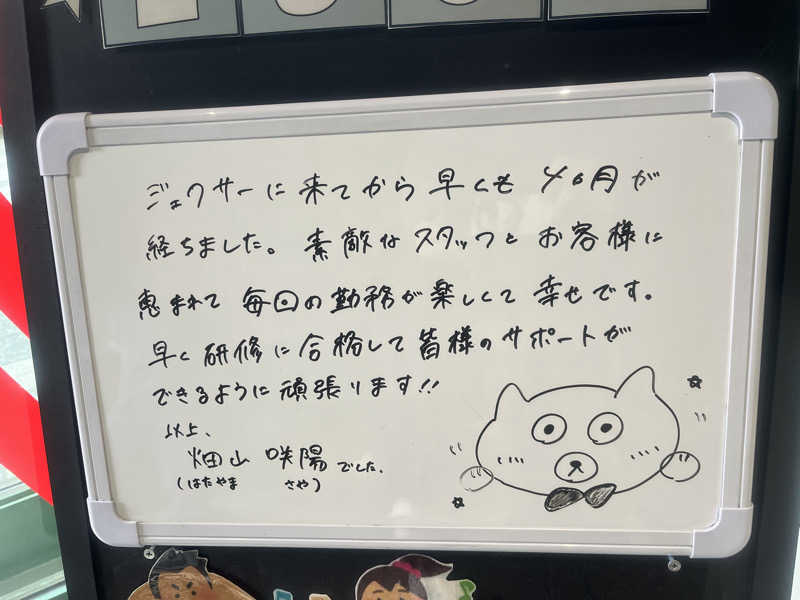 ジェクサーに来てから早くも4ヶ月が
経ちました。素敵なスタッフとお客様に
恵まれて毎回の勤務が楽しくて幸せです。
早く研修に合格して皆様のサポートが
できるように頑張ります!!
以上、
畑山 咲陽でした。
(はたやま さや)